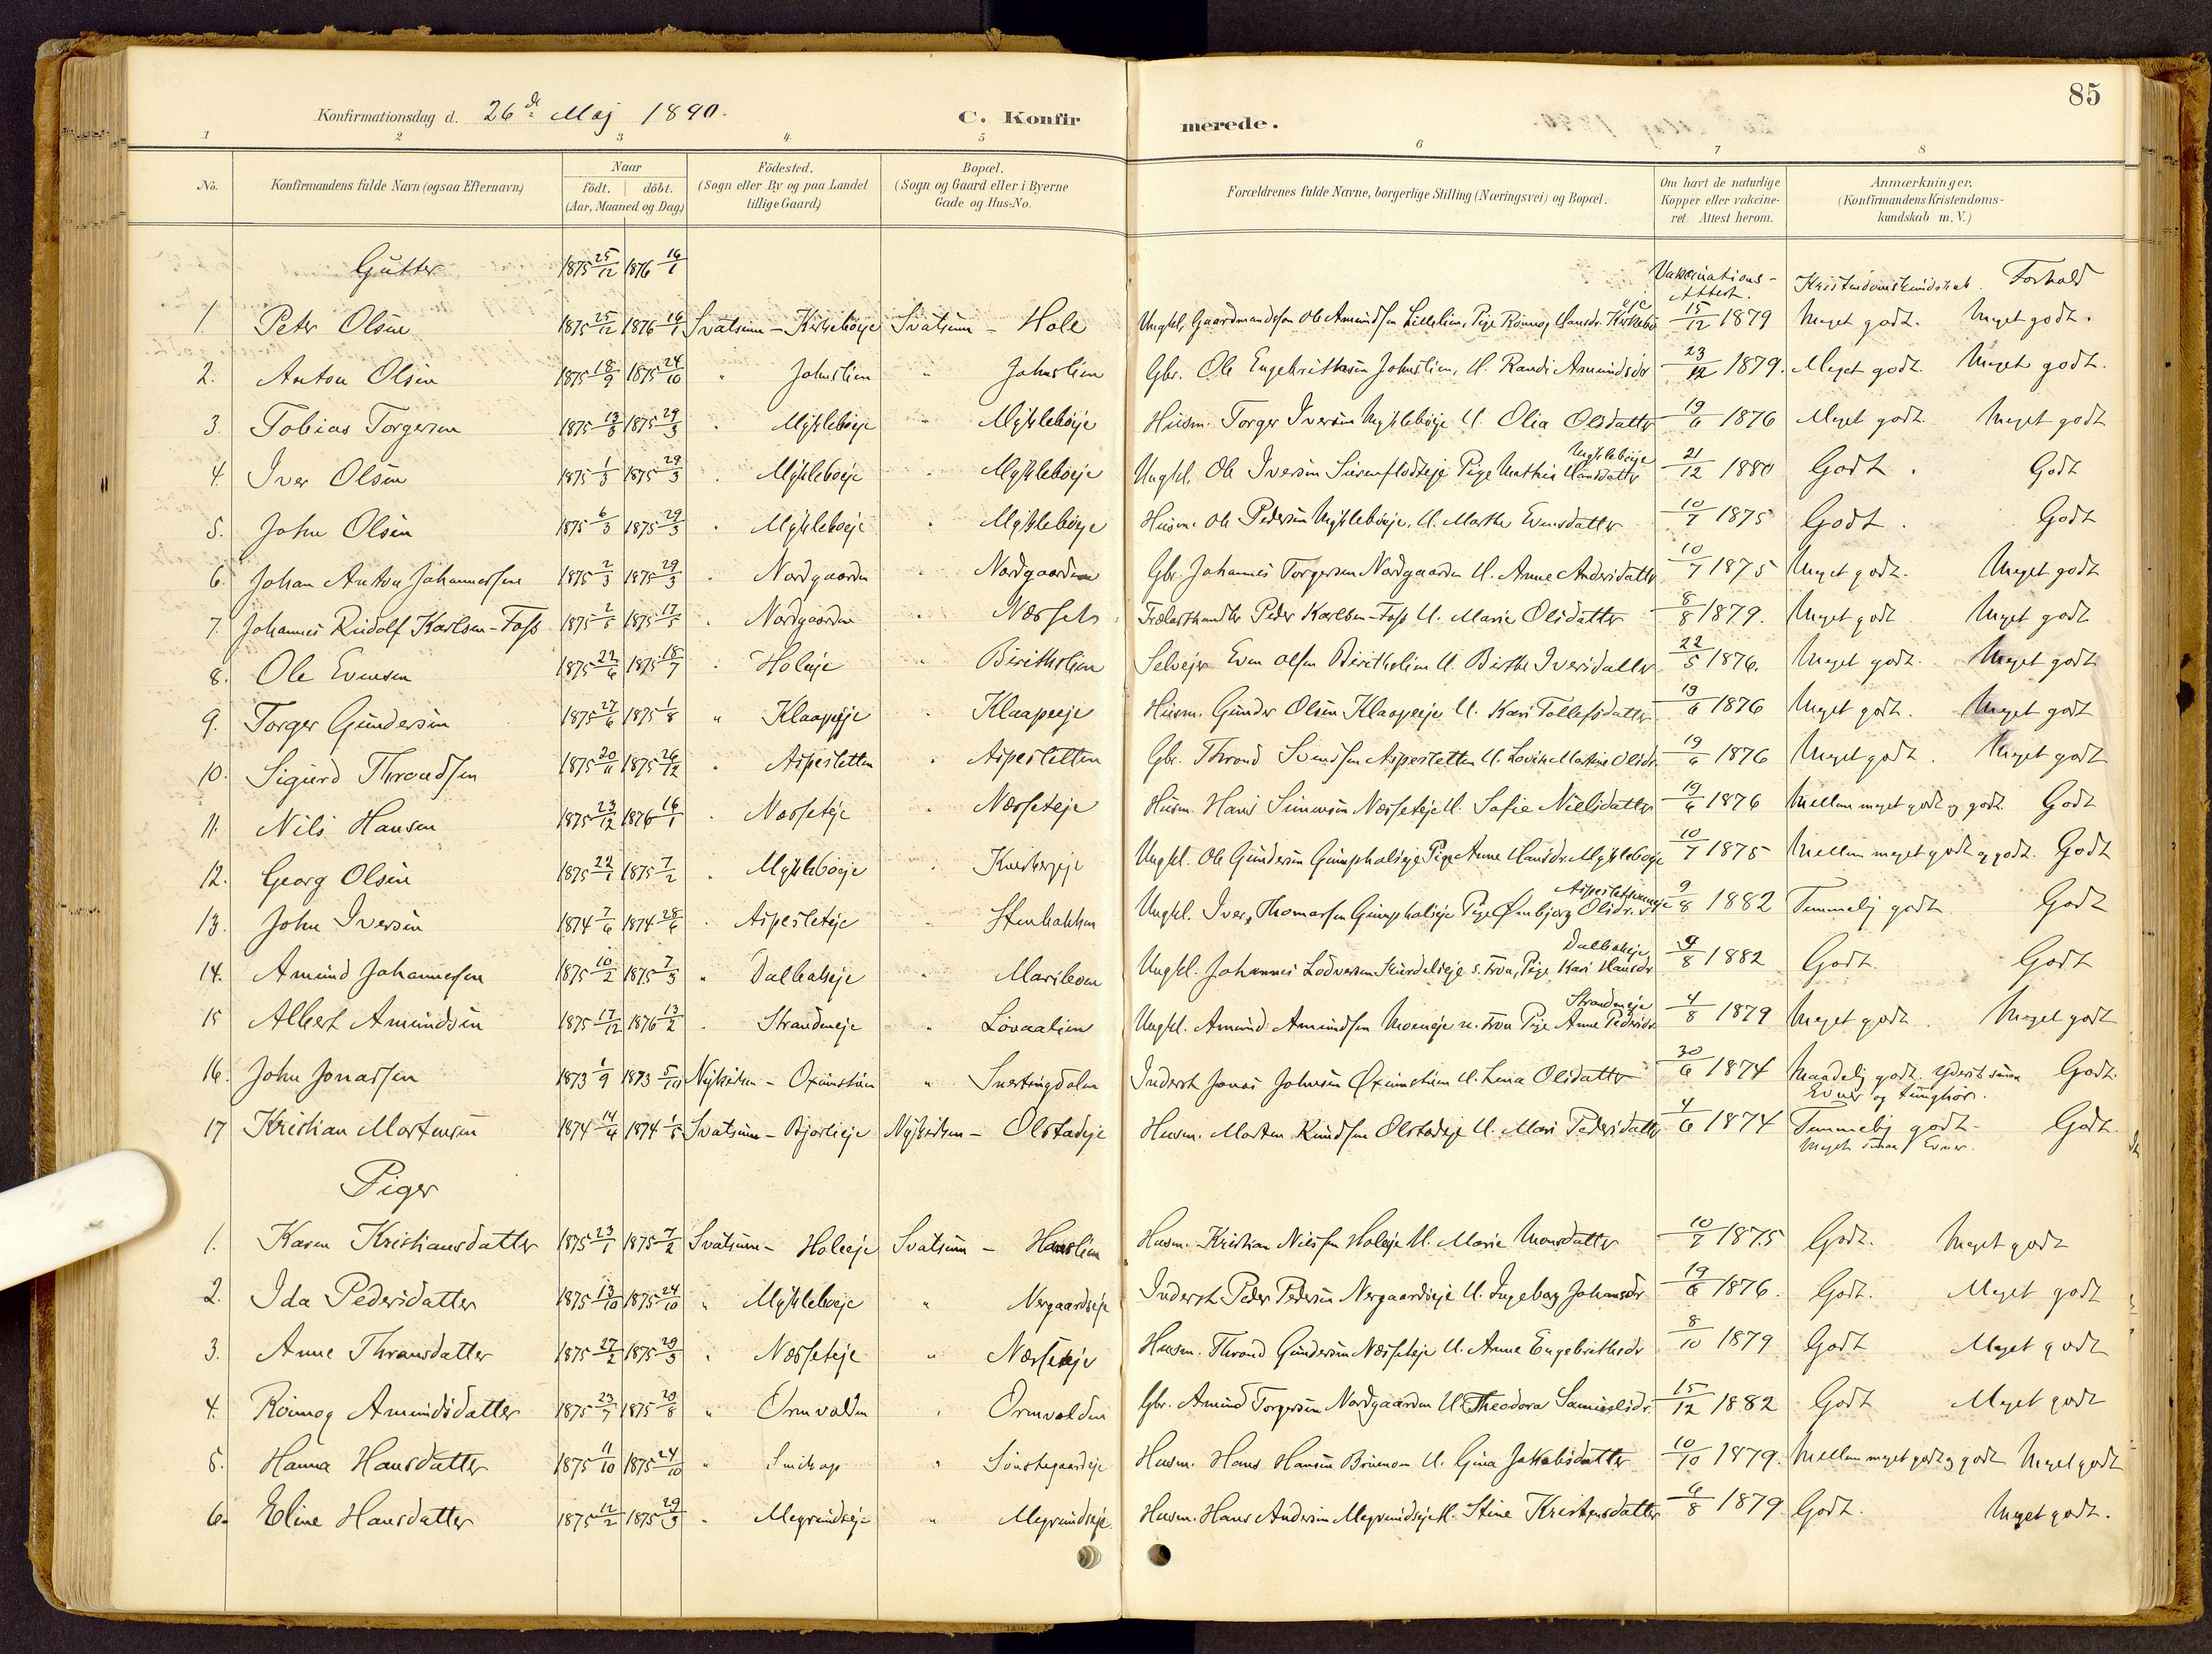 85
Konfirmationsdag d. 26de Maj 1890. C. Konfirmerede.
1 2 3 4 5 6 7 8
No. Konfirmandens fulde Navn (ogsaa Efternavn) Naar födt. döbt. (Aar, Maaned og Dag) Födested. (Sogn eller By og paa Landet tillige Gaard) Bopæl. (Sogn og Gaard eller i Byerne Gade og Hus-No. Forældrenes fulde Navne, borgerlige Stilling (Næringsvei) og Bopæl. Om havt de naturlige Kopper eller vakcineret. Attest herom. Anmærkninger. (Konfirmandens Kristendomskundskab m. V.)
Gutter 1875 25/12 1876 16/1 Vakcinations-Attest. Kristendomskundskab. Forhold
1. Peter Olsen 1875 25/12 1876 16/1 Svatsum - Kirkeböeje Svatsum - Hole Ungkl, Gaardmandssön Ole Amundsen Lillelien, Pige Rönnog Hansdr. Kirkebö eje 15/12 1879 Meget godt. Meget godt.
2. Anton Olsen 1875 18/9 1875 24/10 " Johnslien " Johnslien Gbr. Ole Engebrithsen Johnslien, H. Randi Amundsdr 23/12 1879. Meget godt. Meget godt.
3. Tobias Torgersen 1875 13/3 1875 29/3 " Mykleböeje " Mykleböeje Husm. Torger Iversen Mykleböeje H. Olia Olsdatter 19/6 1876 Meget godt. Meget godt
4. Iver Olsen 1875 1/3 1875 29/3 " Mykleböeje " Mykleböeje Ungkl. Ole Iversen Pige Mathia Hansdatter Mykleböeje 21/12 1880 Godt. Godt
5. John Olsen 1875 6/3 1875 29/3 " Mykleböeje " Mykleböeje Husm. Ole Pedersen Mykleböeje, H. Marthe Evensdatter 10/7 1875 Godt. Godt
6. Johan Anton Johannessen 1875 2/3 1875 29/3 " Nordgaarden " Nordgaarden Gbr. Johannes Torgersen Nordgaarden H. Anne Andersdatter 10/7 1875 Meget godt. Meget godt
7. Johannes Rudolf Karlsen-Foss 1875 2/5 1875 17/5 " Nordgaarden " Næsset Trælasthandler Peder Karlsen-Foss H. Marie Olsdatter 8/8 1879. Meget godt Meget godt
8. Ole Evensen 1875 22/6 1875 18/7 " Holeeje " Birithslien Selvejer Even Olsen Birithslien H. Birthe Iversdatter 22/5 1876. Meget godt. Meget godt
9. Torger Gundersen 1875 27/6 1875 1/8 " Klaapeeje " Klaapeeje Husm. Gunder Olsen Klaapeeje H. Kari Tollefsdatter 19/6 1876 Meget godt. Meget godt
10. Sigurd Throndsen 1875 20/11 1875 26/12 " Aspesletten " Aspesletten Gbr. Thrond Svendsen Aspesletten H. Lovise Martine Olsdr. 19/6 1876 Meget godt. Meget godt
11. Nils Hansen 1875 23/12 1876 16/1 " Næsseteje " Næsseteje Husm. Hans Simensen Næsseteje H. Sofie Nielsdatter 19/6 1876 Mellem meget godt og godt Godt
12. Georg Olsen 1875 22/1 1875 7/2 " Mykleböeje " Ungkl. Ole Gundersen Pige Anne Hansdr. Mykleböeje 10/7 1875 Mellem meget godt og godt. Godt
13. John Iversen 1874 7/6 1874 28/6 " Aspesleteje " Stenbakken Ungkl. Iver Thomassen Pige Ønbjørg Olsdr. 9/8 1882 Temmelig godt Godt
14. Amund Johannessen 1875 10/2 1875 7/3 " Dalbakeje " Mariboen Ungkl. Johannes Lodversen Pige Kari Hansdr Dalbakeje 9/8 1882 Godt. Godt
15 Albert Amundsen 1875 17/12 1876 13/2 " Strandeneje " Lovaalien Ungkl. Amund Amundsen Moeneje Pige Anne Pedersdr. Strandeneje 4/8 1879 Meget godt. Meget godt
16. John Jonassen 1873 1/9 1873 5/10 Nykirken - Oxumstuen " Snertingdalen Inderst Jonas Johnsen Øxumstuen H. Lena Olsdatter 30/6 1874 Maadelig godt. Yderst smaa Evner og tunghør. Godt.
17 Kristian Mortensen 1874 14/4 1874 1/5 Svatsum - Bjørlieje Nykirken - Olstadeje Husm. Morten Knudsen Olstadeje H. Mari Pedersdatter 4/6 1874 Temmelig godt - Meget smaa Evner. Godt.
Piger
1. Karen Kristiansdatter 1875 23/1 1875 7/2 Svatsum - Holeeje Svatsum - Hanslien Husm. Kristian Nilssen Holeeje H. Marie Monsdatter 10/7 1875 Godt. Meget godt
2. Ida Pedersdatter 1875 13/10 1875 24/10 " Mykleböeje " Nergaardseje Inderst Peder Pedersen Nergaardseje H. Ingeborg Johansdr 19/6 1876. Godt. Meget godt
3. Anne Thronsdatter 1875 27/2 1875 29/3 " Næsseteje " Næsseteje Husm. Thrond Gundersen Næsseteje H. Anne Engebrithsdr 8/10 1879 Godt Meget godt
4. Rönnog Amundsdatter 1875 23/7 1875 29/8 " Ormvolden " Ormvolden Gbr. Amund Torgersen Nordgaarden H. Theodora Samuelsdr. 15/12 1882 Godt Meget godt
5. Hanna Hansdatter 1875 11/10 1875 24/10 " " Sönstegaardeje Husm. Hans Hansen Bruemoen H. Gina Jakobsdatter 10/10 1879. Mellem meget godt og godt Meget godt
6. Eline Hansdatter 1875 12/2 1875 29/3 " Megrundseje " Megrundseje. Husm. Hans Andersen Megrundseje H. Stine Kristensdatter 6/8 1879. Godt. Meget godt.